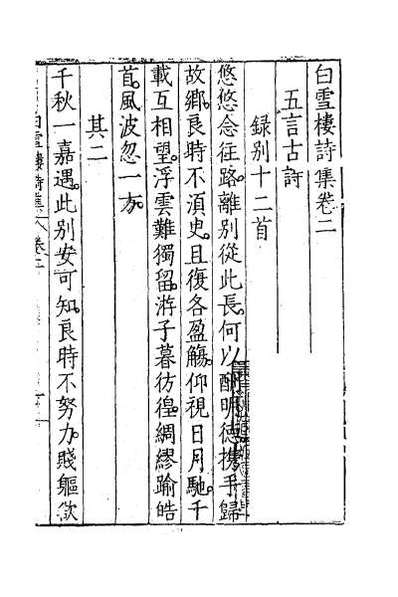 白雪樓詩集卷二
五言古詩
錄別十二首
悠悠念往路離別從此長何以酬明德携手歸
故鄉良時不須史且復各盈觴仰視日月馳千
載互相望浮雲難獨留游子暮彷徨綢繆踰皓
首風波忽一方
其二
千秋一嘉遇此别安可知良時不努力賤軀欻
白雪樓詩集 卷二